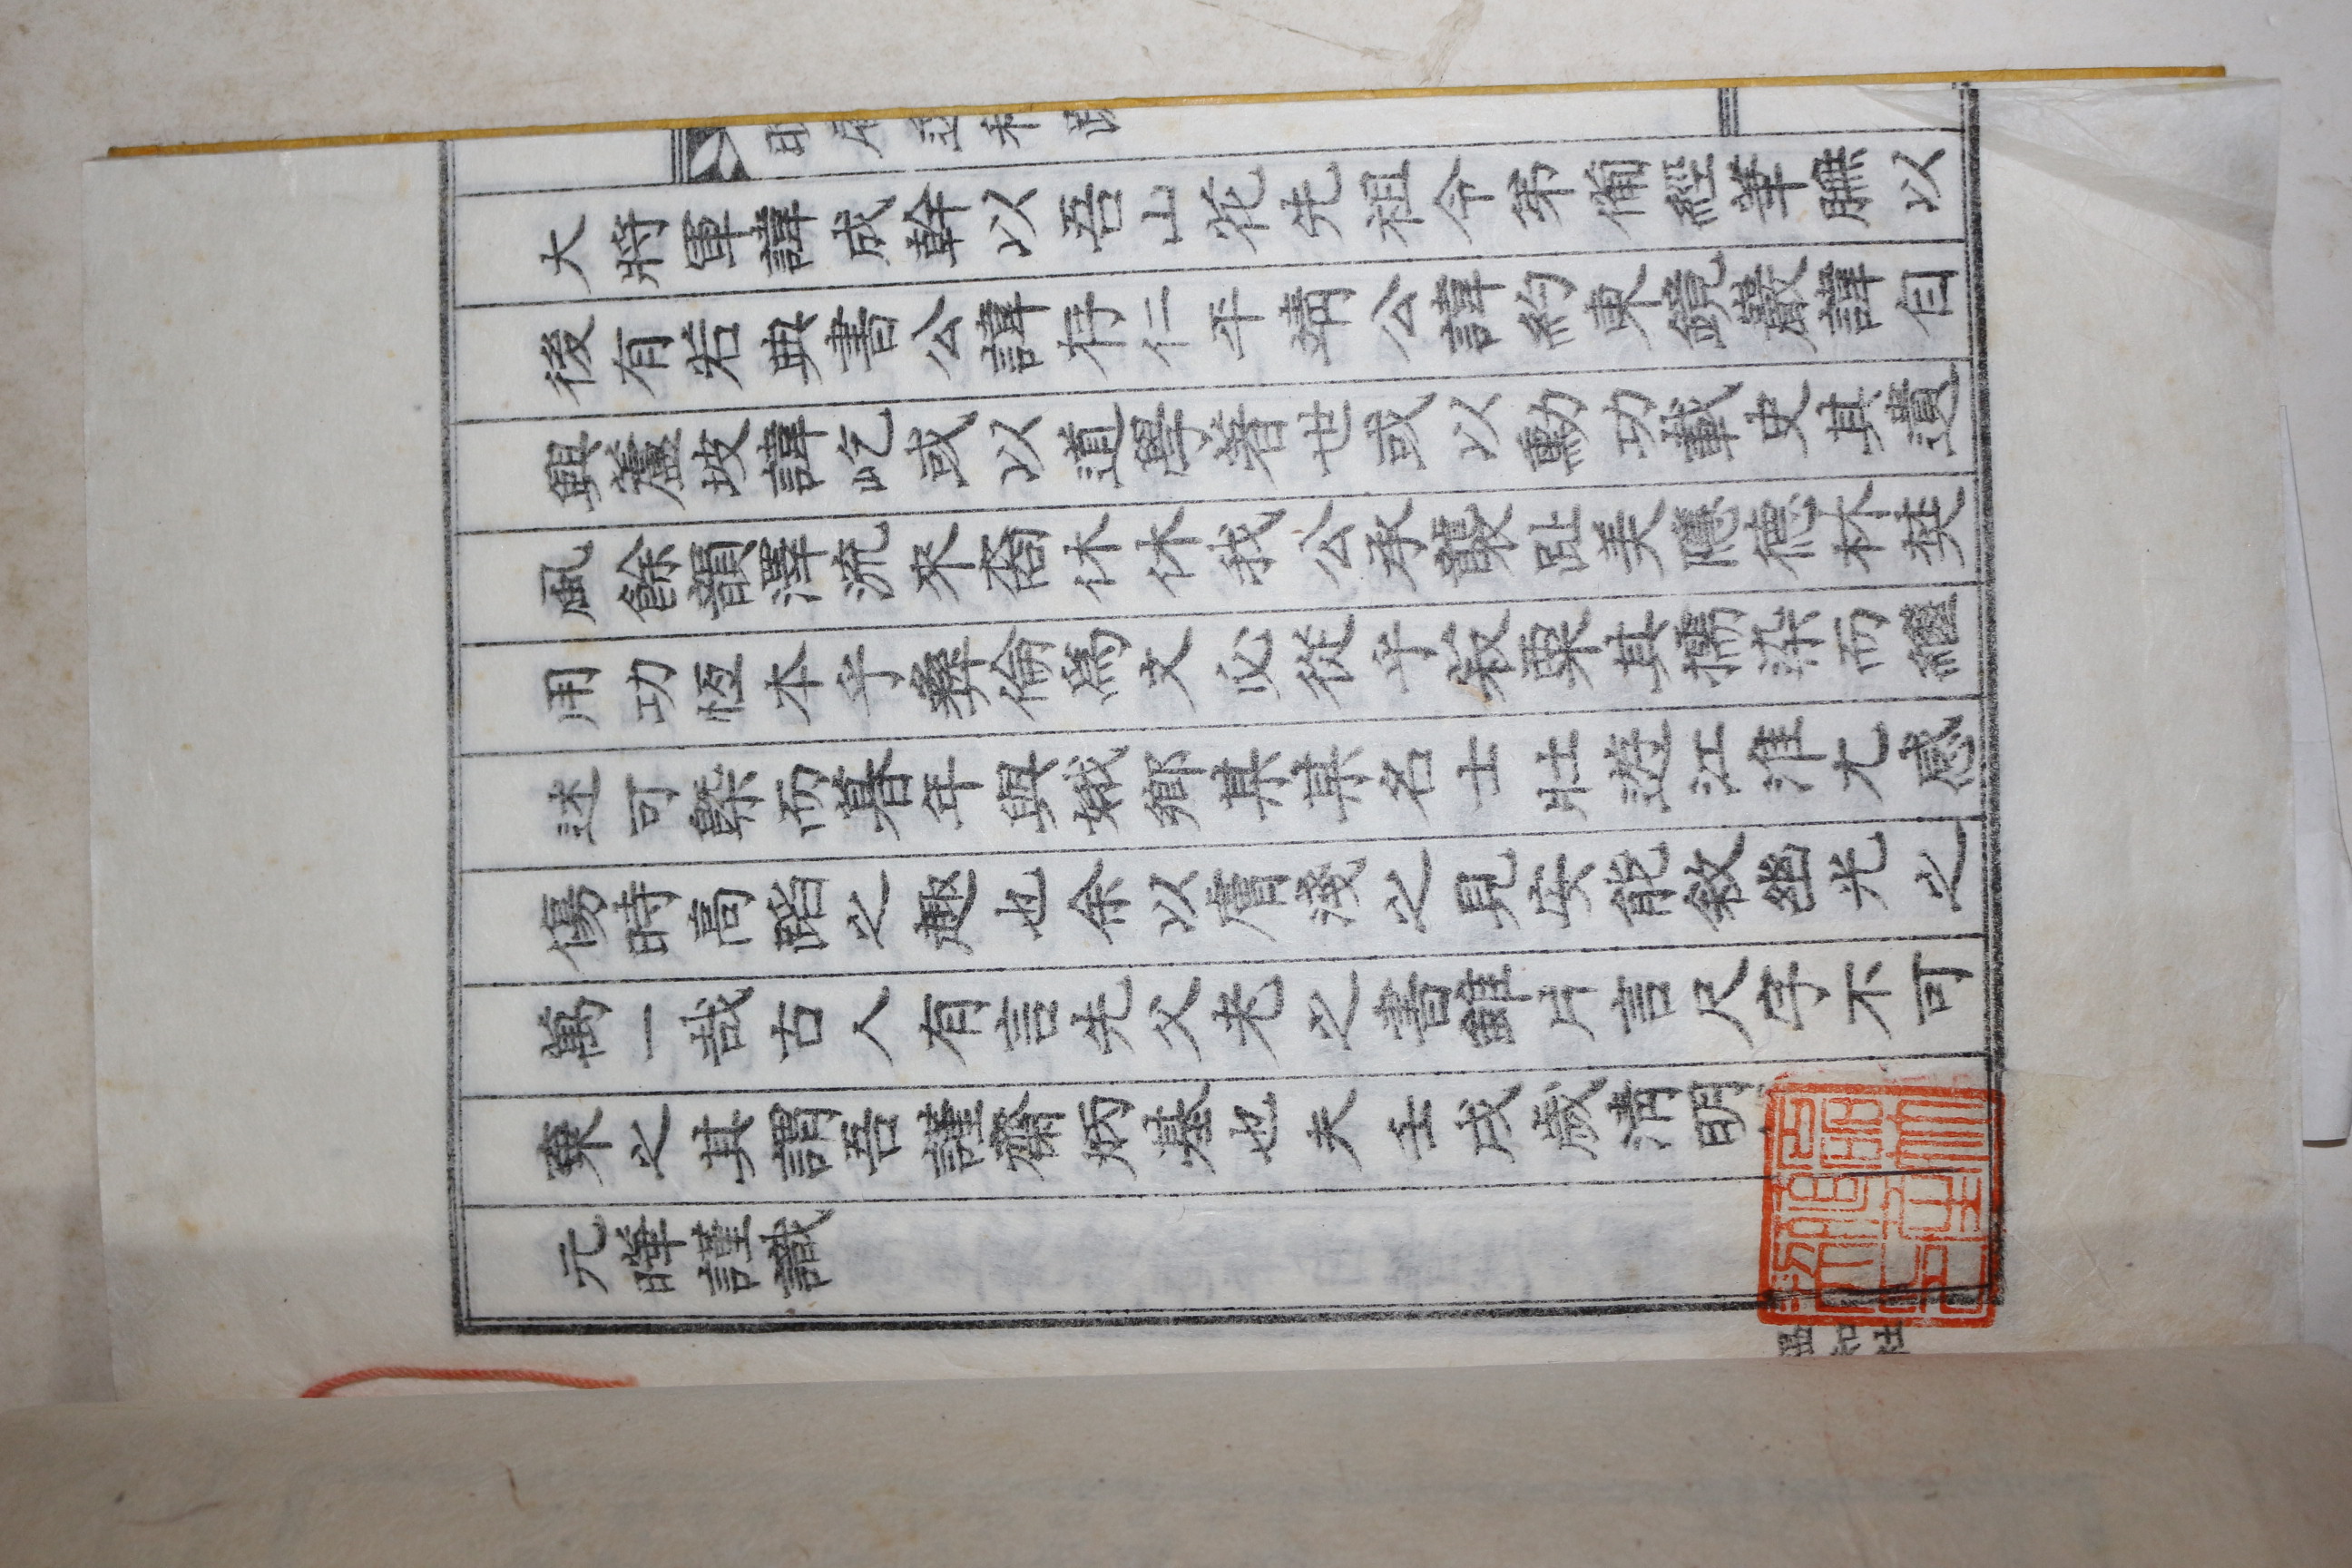 大將軍諱成幹以吾山花先祖令弟備經筆膴以
後有若典書公諱存仁平靖公諱約東鏡巖諱自
興蘆坡諱屹或以道學著世或以勳功載史其遺
風餘韻澤流來裔休休我公承襲趾美隱德林樊
用功恆本乎彜倫爲文必從乎菽粟其擩染而繼
述可槩而暮年與娥鄉某某名士壯遊江淮尤感
傷時高蹈之趣也余以膚淺之見安能敘幽光之
萬一哉古人有言先父老之書雖片言尺字不可
棄之其謂吾謹齋炳基也夫壬戌歲淸明
元曄謹識